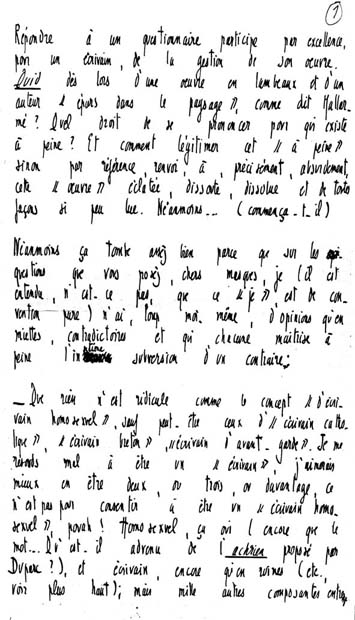 1
Répondre à un questionnaire participe par excellence,
pour un écrivain, de la gestion de son œuvre.
Quid dès lors d'une œuvre en lambeaux et d'un
auteur « épars dans le paysage », comme dit Mallar-
mé ? Quel droit de se prononcer pour qui existe
à peine ? Et comment légitimer cet « à peine »
sinon par référence, renvoi, à, précisément, absurdement,
cette « œuvre » éclatée, dissoute, dissolue et de toutes
façons si peu lue. Néanmoins... (commença-t-il)
Néanmoins ça tombe assez bien parce que sur les
questions que vous posez, chers masques, je (il est
entendu, n'est-ce pas, que ce « je » est de con-
vention pure) n'ai, long moi-même, d'opinions qu'en
miettes, contradictoires et qui chacune maîtrise à
peine l'intime subversion d'un contraire;
_ Que rien n'est ridicule comme le concept d'« écri-
vain homosexuel », sauf peut-être ceux d'« écrivain catho-
lique », « écrivain breton », « écrivain d'avant-garde ». Je me
résous mal à être un « écrivain », j'aimerais
mieux en être deux, ou trois, ou davantage, ce
n'est pas pour consentir à être un « écrivain homo-
sexuel », pouah ! Homosexuel, ça oui (encore que le
mot... Qu'est-il advenu de l'achrien proposé par
Duparc ?), et écrivain, encore qu'en ruines (etc.,
voir plus haut); mais mille autres composantes